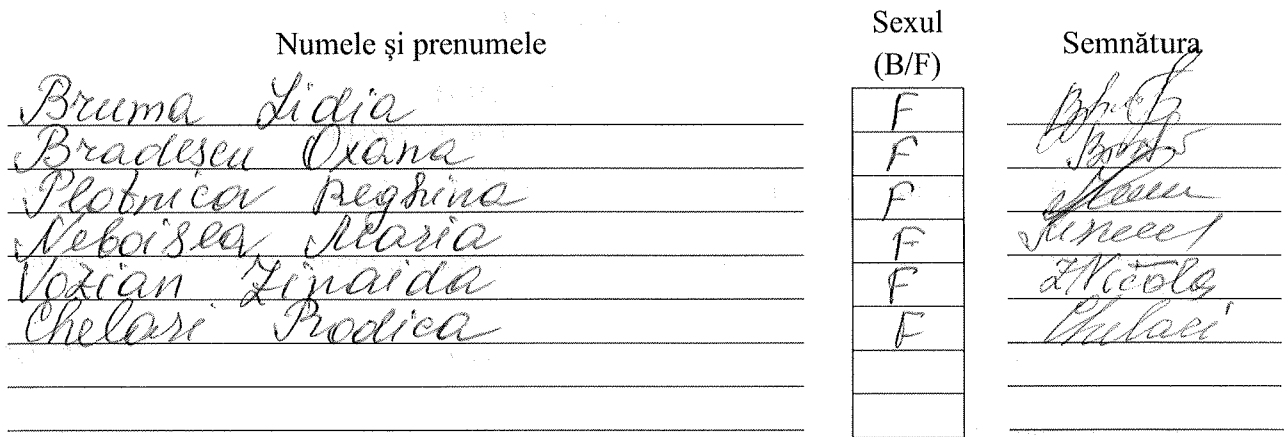 Numele și prenumele Sexul (B/F) Semnătura
Bruma Lidia F
Bradescu Oxana F
Plotnicov Reghina F
Neboisea Maria F
Vozian Zinaida F ZNicola
Chelari Rodica F Chelari